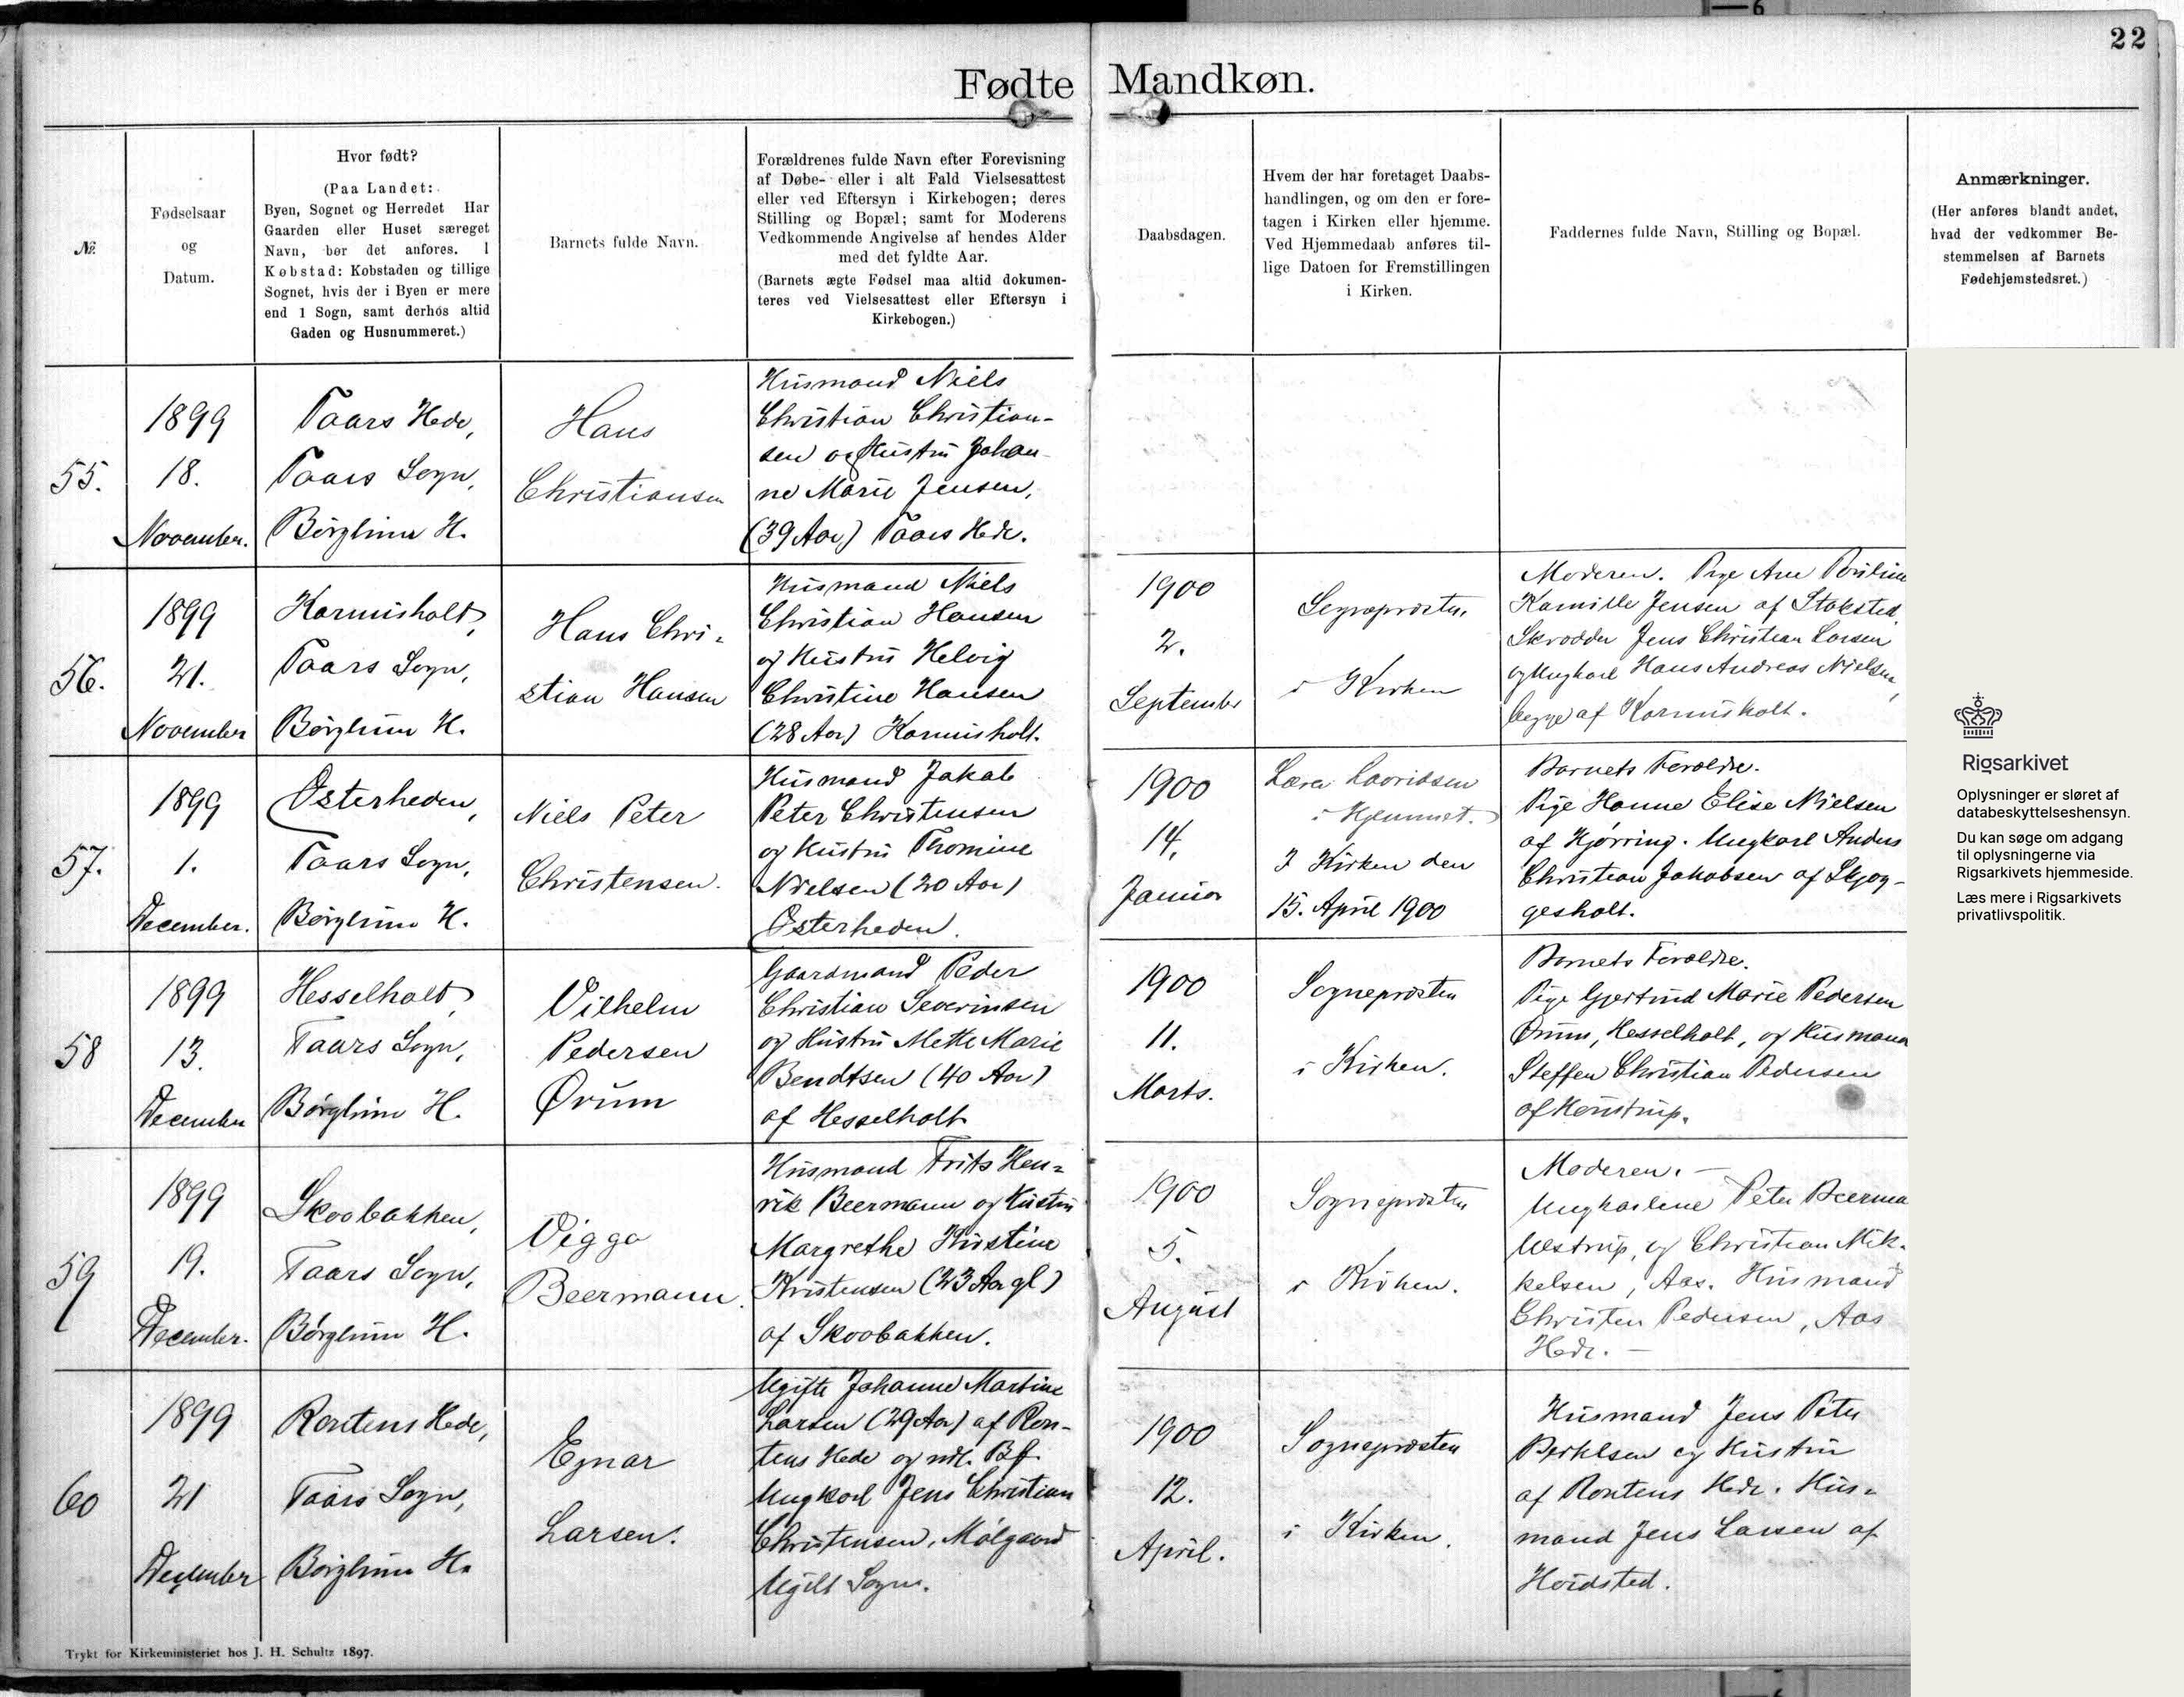 22
Fødte Mandkøn.
№
Fødselsaar
og
Datum.
Hvor født?
(Paa Landet:
Byen, Sognet og Herredet Har
Gaarden eller Huset særeget
Navn, bør det anføres. I
Købstad: Købstaden og tillige
Sognet, hvis der i Byen er mere
end 1 Sogn, samt derhos altid
Gaden og Husnummeret.)
Barnets fulde Navn.
Forældrenes fulde Navn efter Forevisning
af Døbe- eller i alt Fald Vielsesattest
eller ved Eftersyn i Kirkebogen; deres
Stilling og Bopæl; samt for Moderens
Vedkommende Angivelse af hendes Alder
med det fyldte Aar.
(Barnets ægte Fødsel maa altid dokumen-
teres ved Vielsesattest eller Eftersyn i
Kirkebogen.)
Daabsdagen.
Hvem der har foretaget Daabs-
handlingen, og om den er fore-
tagen i Kirken eller hjemme.
Ved Hjemmedaab anføres til-
lige Datoen for Fremstillingen
i Kirken.
Faddernes fulde Navn, Stilling og Bopæl.
Anmærkninger.
(Her anføres blandt andet,
hvad der vedkommer Be-
stemmelsen af Barnets
Fødehjemstedsret.)
55.
1899
18.
November.
Taars Hede,
Taars Sogn,
Børglum H.
Hans
Christiansen
Husmand Niels
Christian Christian-
sen og Hustru Johan-
ne Marie Jensen,
(39 Aar) Taars Hede.
56.
1899
21.
November
Karmisholt,
Taars Sogn,
Børglum H.
Hans Chri-
stian Hansen
Husmand Niels
Christian Hansen
og Hustru Helvig
Christine Hansen
(28 Aar) Karmisholt.
1900
2.
September
Sogneprosten
i Kirken
Moderen. Pige Ane Pouline
Kamille Jensen af Stoksted,
Skrædder Jens Christian Larsen
og Ungkarl Hans Andreas Nielsen,
begge af Karmisholt.
57.
1899
1.
December.
Østerheden,
Taars Sogn,
Børglum H.
Niels Peter
Christensen.
Husmand Jakob
Peter Christensen
og Hustru Thomine
Nielsen (20 Aar)
Østerheden.
1900
14.
Januar
Lærer Lavridsen
i Hjemmet.
I Kirken den
15. April 1900
Barnets Forældre.
Pige Hanne Elise Nielsen
af Hjørring. Ungkarl Anders
Christian Jakobsen af Skjog-
gesholt.
58
1899
13.
December
Hesselholt,
Taars Sogn,
Børglum H.
Vilhelm
Pedersen
Ørum
Gaardmand Peder
Christian Severinsen
og Hustru Mette Marie
Bendtsen (40 Aar)
af Hesselholt
1900
11.
Marts.
Sogneprosten
i Kirken.
Barnets Forældre.
Pige Gjertrud Marie Pedersen
Ørum, Hesselholt, og Husmand
Steffen Christian Pedersen
af
59
1899
19.
December.
Skovbakken,
Taars Sogn,
Børglum H.
Viggo
Beermann.
Husmand Frits Hen-
rik Beermann og Hustru
Margrethe Kirstine
Kristensen (23 Aar gl)
af Skovbakken.
1900
5.
August
Sogneprosten
i Kirken.
Moderen. —
Ungkarlene Peter Beerma
Ulstrup, og Christian Mik-
kelsen, Aas. Husmand
Christen Pedersen, Aas
Hede. —
60
1899
21
December
Rontens Hede,
Taars Sogn,
Børglum H.
Ejnar
Larsen.
Ugifte Johanne Martine
Larsen (29 Aar) af Ron-
tens Hede og udl. Bf.
Ungkarl Jens Christian
Christensen, Mølgaard
Ugilt Sogn.
1900
12.
April.
Sogneprosten
i Kirken.
Husmand Jens Peter
og Hustru
af Rontens Hede. Hus-
mand Jens Larsen af
Hvidsted.
Trykt for Kirkeministeriet hos J. H. Schultz 1897.
Rigsarkivet
Oplysninger er sløret af
databeskyttelseshensyn.
Du kan søge om adgang
til oplysningerne via
Rigsarkivets hjemmeside.
Læs mere i Rigsarkivets
privatlivspolitik.